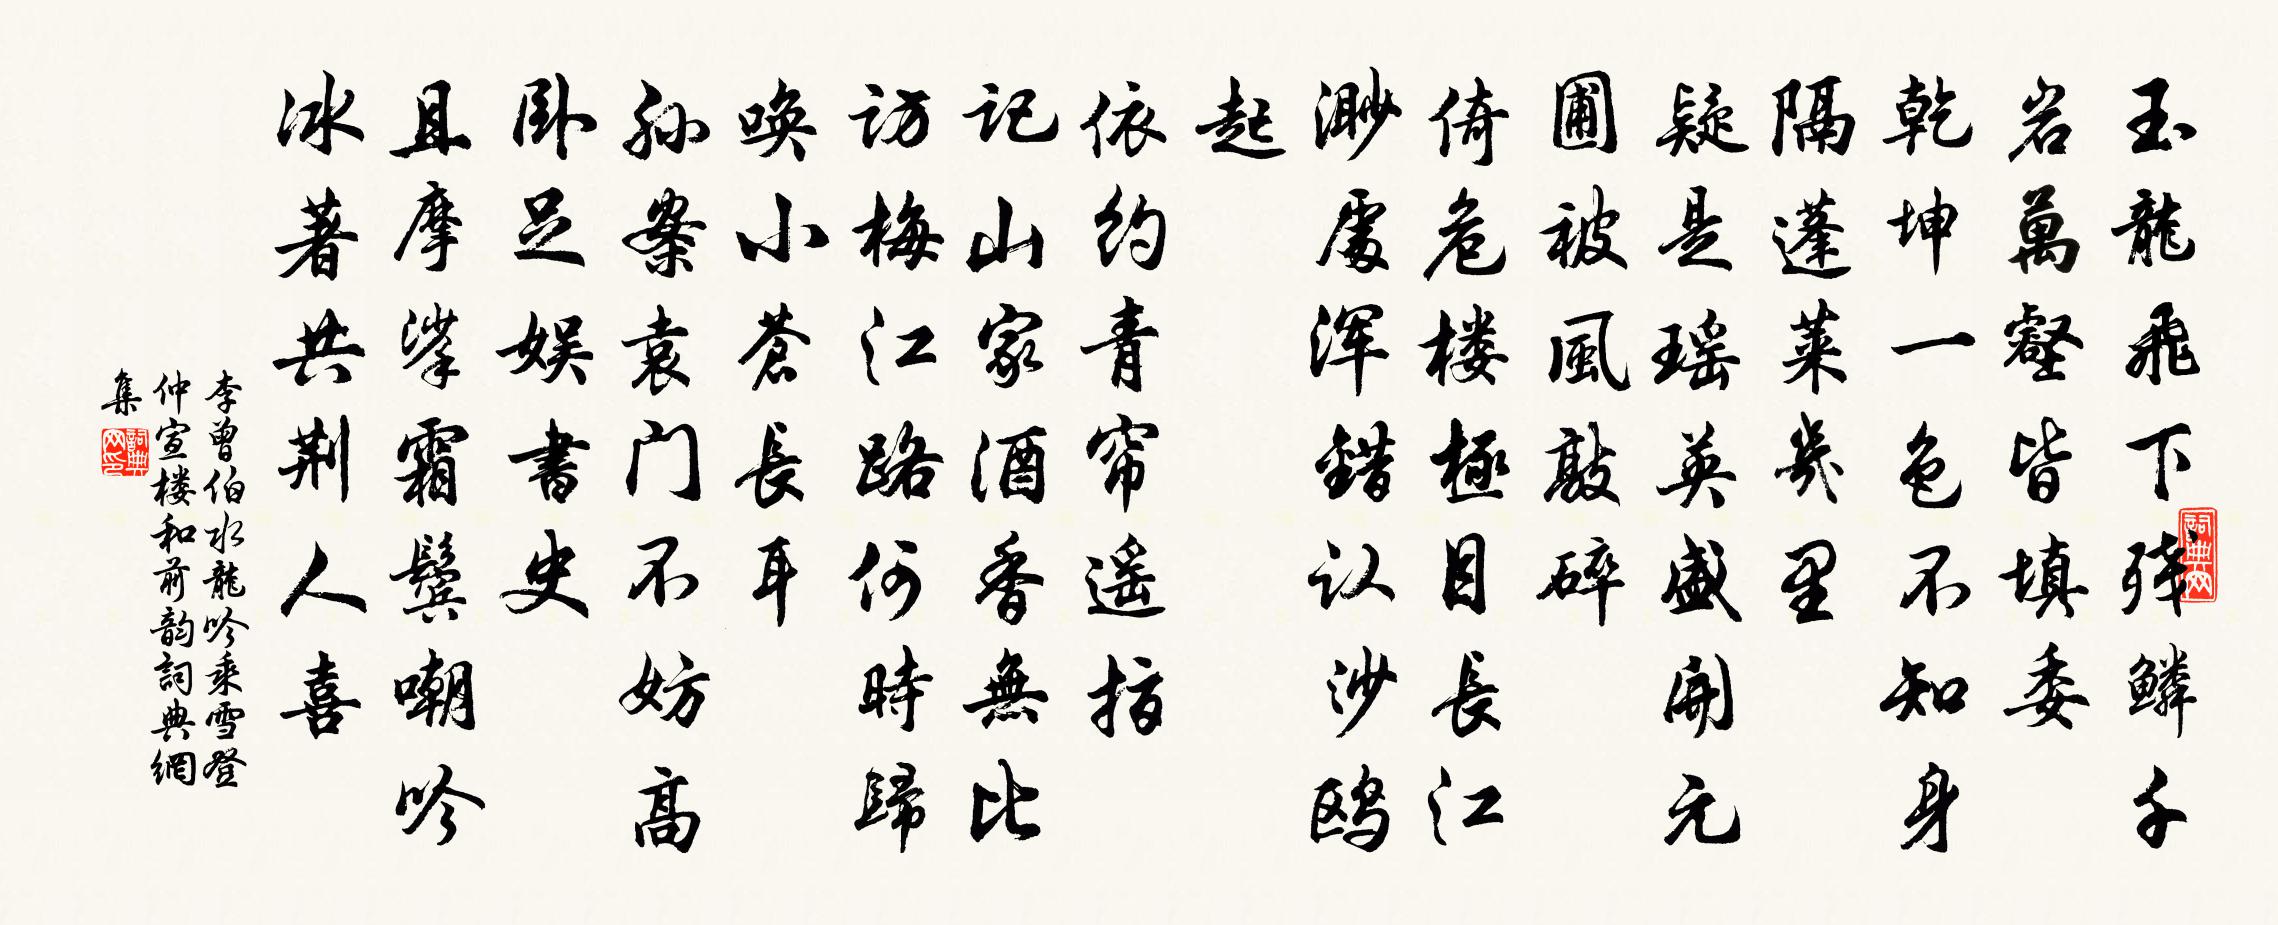 玉龍飛下残鳞千
岩萬壑皆填委
乾坤一色不知身
隔蓬莱幾里
疑是瑶英盛開元
圃被風敲碎
倚危楼極目長江
渺處浑錯认沙鸥
起
依约青帘遥指
记山家酒香無比
访梅江路何時歸
唤小蒼長耳
孙案袁门不妨高
卧足娱書史
且摩挲霜鬓嘲吟
冰著共荆人喜
李曾伯水龍吟乘雪登
仲宣楼和前韵詞典網
集
詞典网
詞典网印